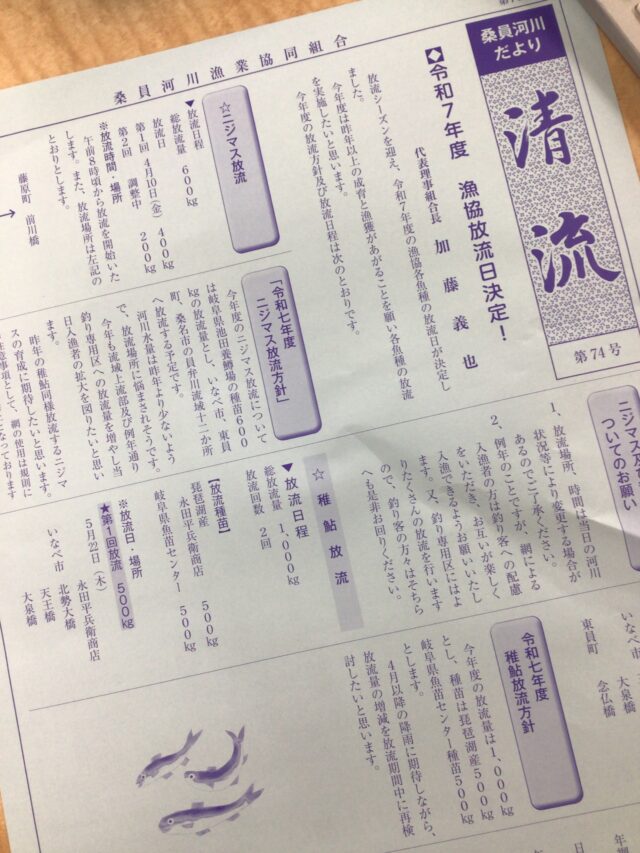 桑員河川
だより
清流
第74号
桑員河川漁業協同組合
◆令和7年度 漁協放流日決定！
代表理事組合長 加藤義也
放流シーズンを迎え、令和7年度の漁協各魚種の放流日が決定し
ました。
今年度は昨年以上の成育と漁獲があがることを願い各魚種の放流
を実施したいと思います。
今年度の放流方針及び放流日程は次のとおりです。
☆ニジマス放流
▼放流日程
総放流量 600kg
放流日
第1回 4月10日(金) 400kg
第2回 調整中 200kg
※放流時間・場所
午前8時頃から放流を開始いた
します。また、放流場所は左記の
とおりとします。
藤原町 前川橋
「令和七年度
ニジマス放流方針」
今年度のニジマス放流について
は岐阜県池田養鱒場の種苗600
kgの放流量とし、いなべ市、東員
町、桑名市の員弁川流域十二か所
へ放流する予定です。
河川水量は昨年より少ないよう
で、放流場所に悩まされそうです。
今年も流域上流部及び例年通り
釣り専用区への放流量を増やし当
日入漁者の拡大を図りたいと思い
ます。
昨年の稚鮎同様放流するニジマ
スの育成に期待したいと思います。
注意事項として、網の使用は規則に
なっております
ついてのお願い
1、放流場所、時間は当日の河川
状況等により変更する場合が
あるのでご了承ください。
2、例年のことですが、網による
入漁者の方は釣り客への配慮
をいただき、お互いが楽しく
入漁できるようお願いいたし
ます。又、釣り専用区にはよ
りたくさんの放流を行います
ので、釣り客の方々はそちら
へも是非お回りください。
☆稚鮎放流
▼放流日程
総放流量 1,000kg
放流回数 2回
【放流種苗】
琵琶湖産
永田平兵衛商店 500kg
岐阜県魚苗センター 500kg
※放流日・場所
★第1回放流 500kg
5月22日(木)
永田平兵衛商店
いなべ市 北勢大橋
天王橋
大泉橋
いなべ市 大泉橋
東員町 念仏橋
令和七年度
稚鮎放流方針
今年度の放流量は1,000kg
とし、種苗は琵琶湖産500kg
岐阜県魚苗センター種苗500kg
とします。
4月以降の降雨に期待しながら、
放流量の増減を放流期間中に再検
討したいと思います。